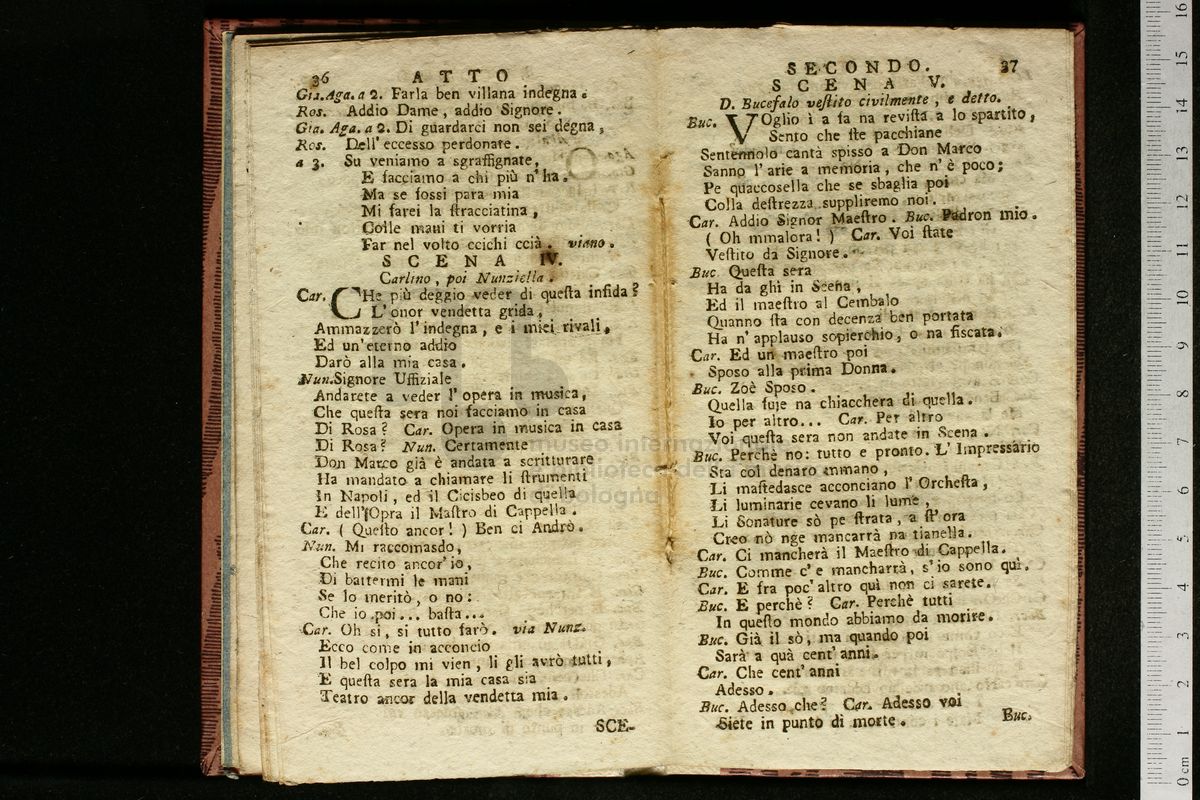 36 ATTO
Gia. Aga. a 2. Farla ben villana indegna.
Ros. Addio Dame, addio Signore.
Gia. Aga. a 2. Di guardarci non sei degna,
Ros. Dell'eccesso perdonate.
a 3. Su veniamo a sgraffignate,
E facciamo a chi più n'ha.
Ma se fossi para mia
Mi farei la stracciatina,
Colle mani ti vorria
Far nel volto ccichi ccià. viano.
SCENA IV.
Carlino, poi Nunziella.
Car. CHe più deggio veder di questa infida?
L'onor vendetta grida,
Ammazzerò l'indegna, e i miei rivali,
Ed un'eterno addio
Darò alla mia casa.
Nun. Signore Uffiziale
Andarete a veder l'opera in musica,
Che questa sera noi facciamo in casa
Di Rosa? Car. Opera in musica in casa
Di Rosa? Nun. Certamente
Don Marco già è andata a scritturare
Ha mandato a chiamare li strumenti
In Napoli, ed il Cicisbeo di quella
E dell'Opra il Mastro di Cappella.
Car. ( Questo ancor! ) Ben ci Andrò.
Nun. Mi raccomando,
Che recito ancor'io,
Di battermi le mani
Se lo meritò, o no:
Che io poi... basta...
Car. Oh si, si tutto farò. via Nunz.
Ecco come in acconcio
Il bel colpo mi vien, li gli avrò tutti,
E questa sera la mia casa sia
Teatro ancor della vendetta mia.
SCE-
SECONDO. 37
SCENA V.
D. Bucefalo vestito civilmente, e detto.
Buc. VOglio i a fa na revista a lo spartito,
Sento che ste pacchiane
Sentennolo cantà spisso a Don Marco
Sanno l'arie a memoria, che n'è poco;
Pe quaccosella che se sbaglia poi
Colla destrezza suppliremo noi.
Car. Addio Signor Maestro. Buc. Padron mio.
( Oh mmalora! ) Car. Voi state
Vestito da Signore.
Buc Questa sera
Ha da ghi in Scena,
Ed il maestro al Cembalo
Quanno sta con decenza ben portata
Ha n'applauso sopierchio, o na fiscata.
Car. Ed un maestro poi
Sposo alla prima Donna.
Buc. Zoè Sposo.
Quella fuje na chiacchera di quella.
Io per altro... Car. Per altro
Voi questa sera non andate in Scena.
Buc. Perchè no: tutto e pronto. L'Impressario
Sta col denaro mmano,
Li mastedasce acconciano l'Orchesta,
Li luminarie cevano li lume,
Li Sonature sò pe strata, a st'ora
Creo nò nge mancarrà na tianella.
Car. Ci mancherà il Maestro di Cappella.
Buc. Comme c'e mancharrà, s'io sono quì.
Car. E fra poc'altro quì non ci sarete.
Buc. E perchè? Car. Perchè tutti
In questo mondo abbiamo da morire.
Buc. Già il sò, ma quando poi
Sarà a quà cent'anni.
Car. Che cent'anni
Adesso.
Buc. Adesso che? Car. Adesso voi
Siete in punto di morte.
Buc.